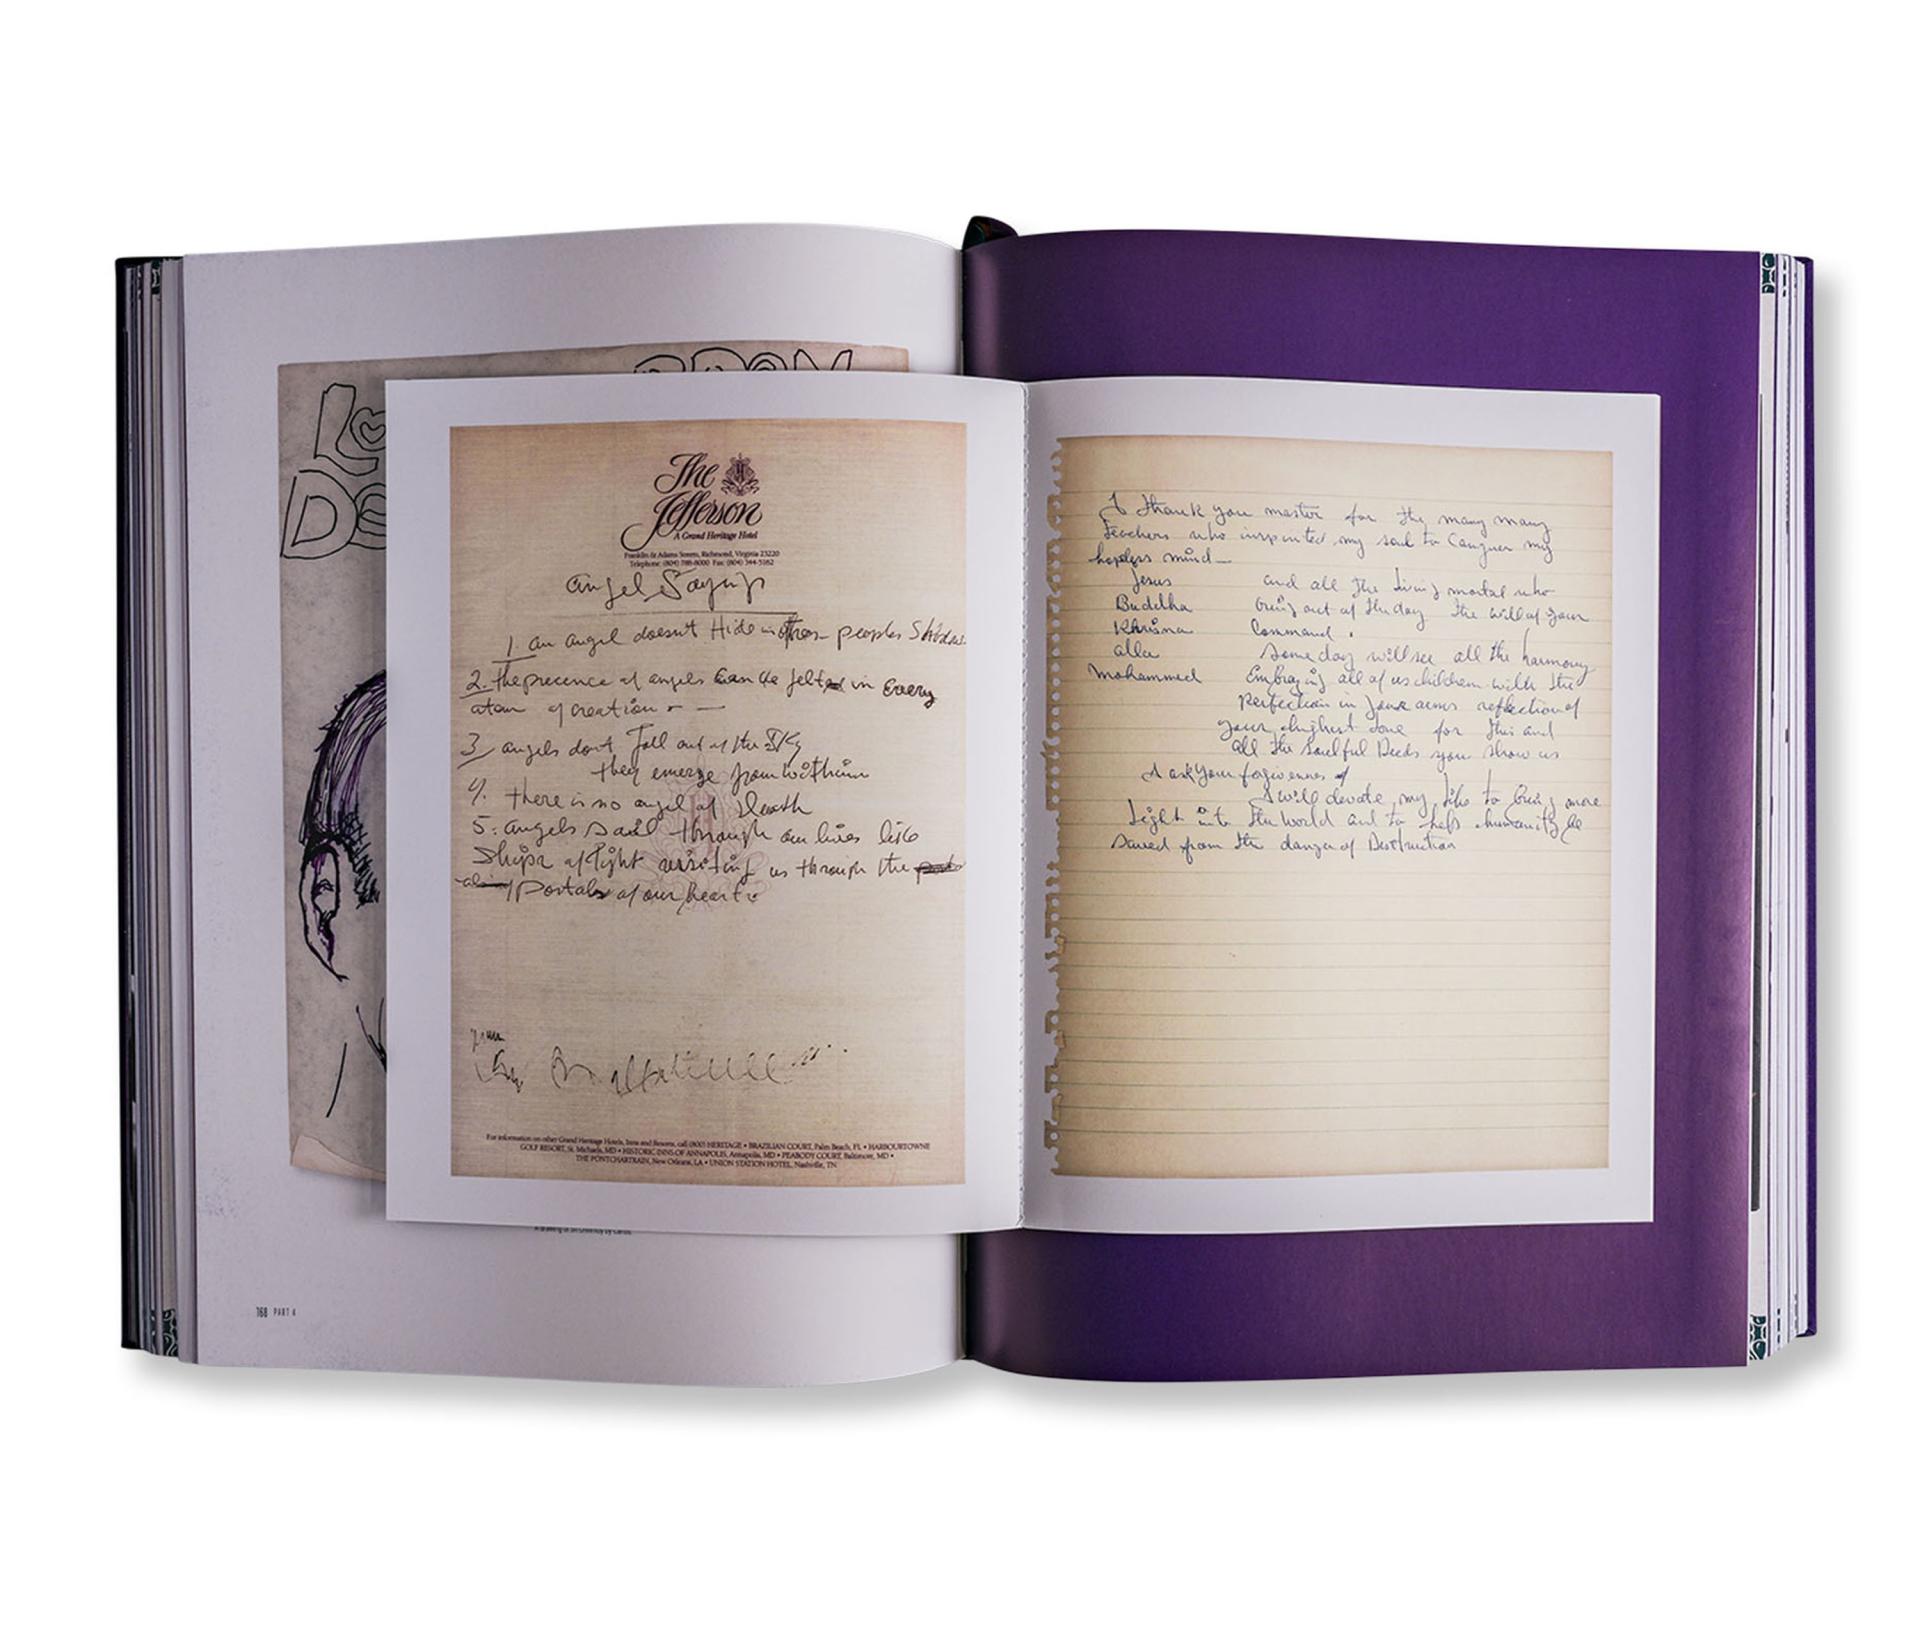 The
Jefferson
A Grand Heritage Hotel
Franklin & Adams Streets, Richmond, Virginia 23220
Telephone: (804) 788-8000 Fax: (804) 344-5162
angel Sayings
1. an angel doesn't Hide in peoples
2. the precence of angels can be felt in Every
atom of creation
3. angels dont fall out of the SKy
they emerge from within
4. there is no angel of Death
5. angels sail through our lives like
Ships of light visiting us through the
portals of our heart
For information on other Grand Heritage Hotels, Inns and Resorts, call (800) HERITAGE • BRAZILIAN COURT, Palm Beach, FL • HARBOURTOWNE
GOLF RESORT, St. Michaels, MD • HISTORIC INNS OF ANNAPOLIS, Annapolis, MD • PEABODY COURT, Baltimore, MD •
THE PONTCHARTRAIN, New Orleans, LA • UNION STATION HOTEL, Nashville, TN
168 PART 4
I thank you master for the many many
Teachers who my soul to Conquer my
hopless mind—
Jesus and all the living mortal who
Buddha bring out of the day the will of your
Khrisna Command.
alla Some day will see all the harmony
Mohammed all of us children with the
Perfection in your arms reflection of
your highest for this and
all the soulful Deeds you show us
I ask your forgivennes
I will devote my life to bring more
Light into the world and to help humanity be
Saved from the danger of Destruction